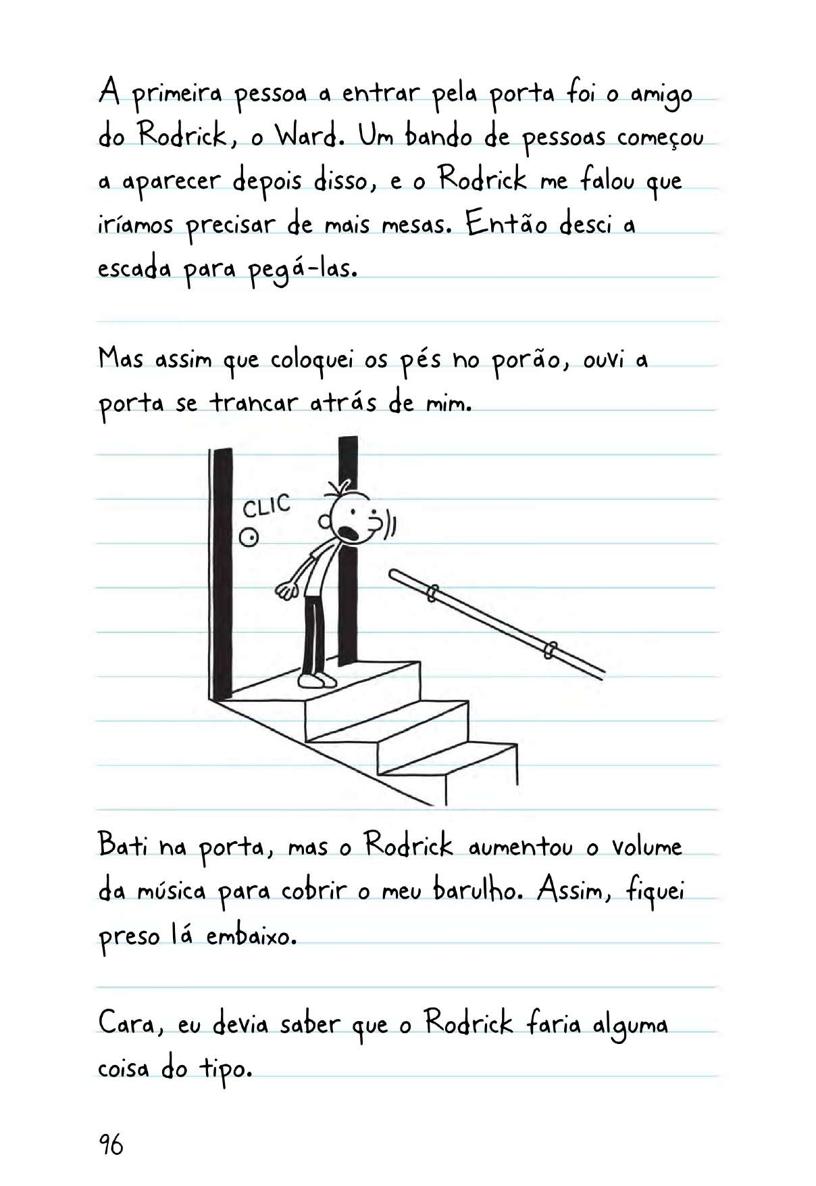 A primeira pessoa a entrar pela porta foi o amigo
do Rodrick, o Ward. Um bando de pessoas começou
a aparecer depois disso, e o Rodrick me falou que
iríamos precisar de mais mesas. Então desci a
escada para pegá-las.
Mas assim que coloquei os pés no porão, ouvi a
porta se trancar atrás de mim.
CLIC
Bati na porta, mas o Rodrick aumentou o volume
da música para cobrir o meu barulho. Assim, fiquei
preso lá embaixo.
Cara, eu devia saber que o Rodrick faria alguma
coisa do tipo.
96